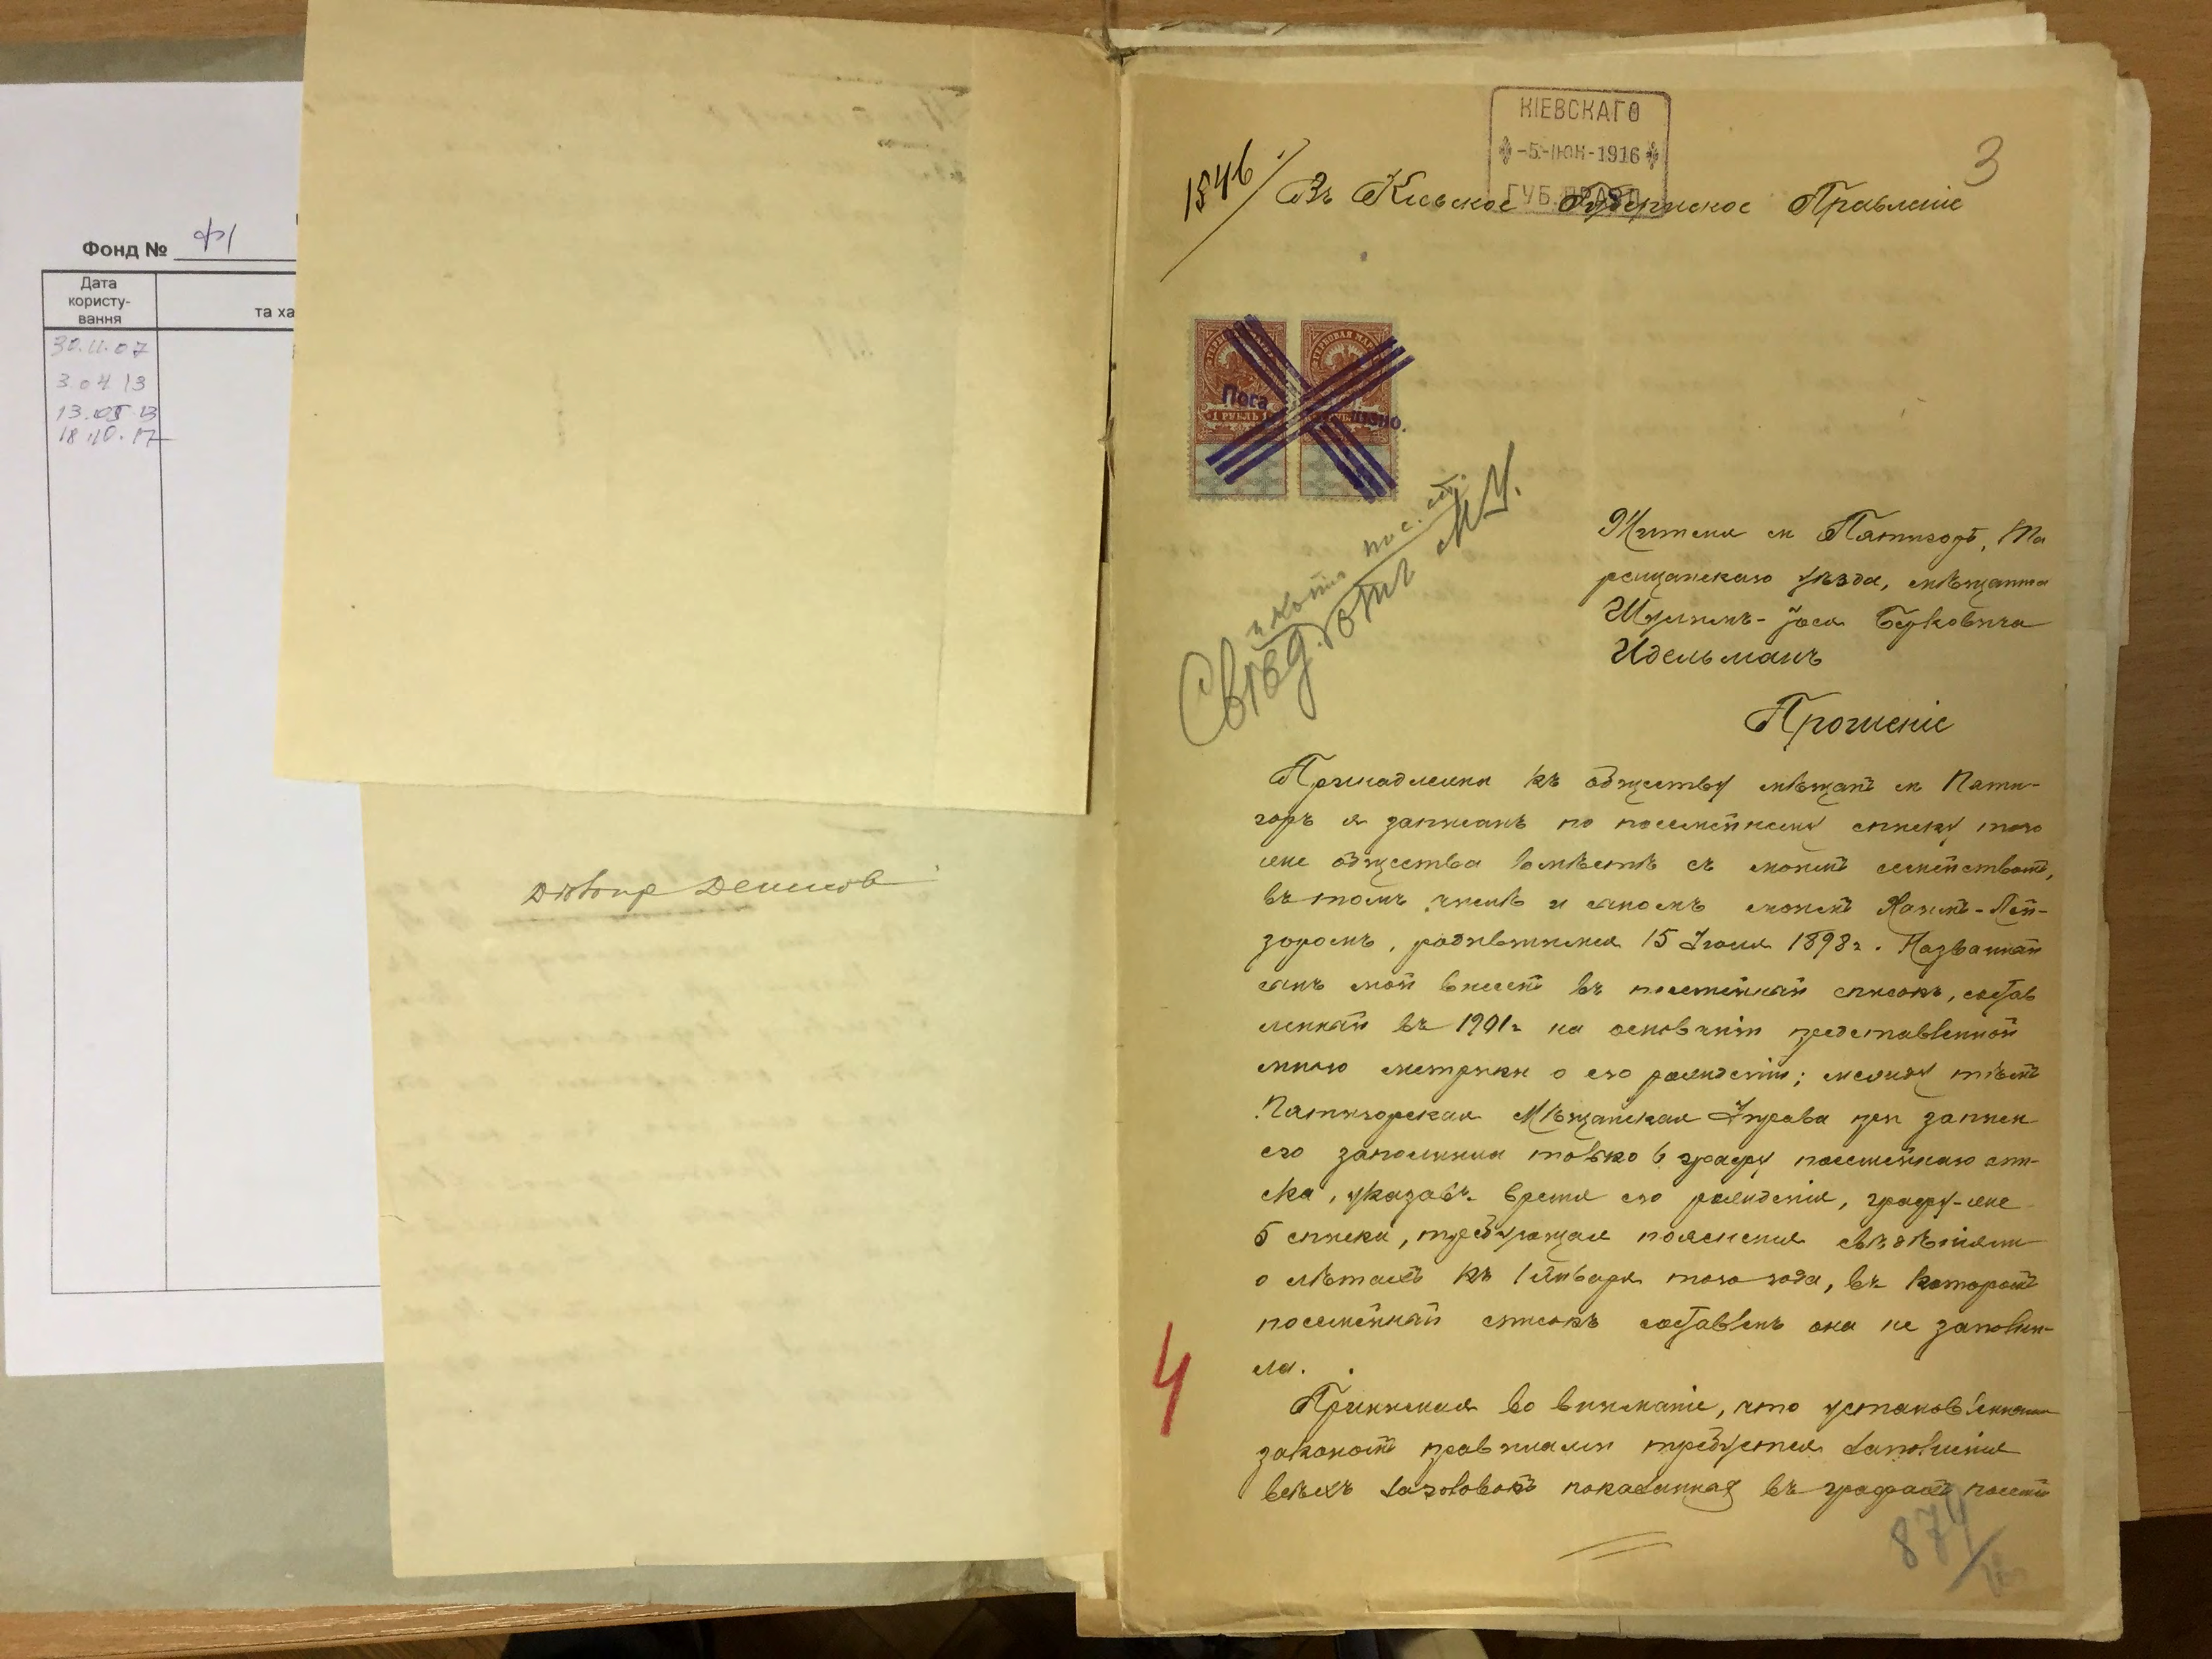 Фонд № Ф1
Дата
користу-
вання
та ха
30.11.07
3.04 13
13.05.13
18.10.17
КІЕВСКАГО
-5-ІЮН-1916
ГУБ. ПРАВЛ.
3
1546
Въ Кіевское Губернское Правленіе
1 РУБЛЬ 1
Пога шено.
Свѣд.
Жителя м Пятигоръ, Та
ращанскаго уѣзда, мѣщанина
Шулимъ-Іося Берковича
Идельманъ
Прошеніе
Принадлежа къ обществу мѣщанъ м Пяти-
горъ я записанъ по посемейному списку того
же общества вмѣстѣ съ моимъ семействомъ,
въ томъ числѣ и сыномъ моимъ Хаимъ-Лей-
зоромъ, родившимся 15 Іюля 1898г. Названный
сынъ мой внесенъ въ посемейный списокъ, состав
ленный въ 1901г на основаніи представленной
мною метрики о его рожденіи; между тѣмъ
Пятигорская Мѣщанская Управа при записи
его заполнила только 6 графу посемейнаго спи-
ска, указавъ время его рожденія, графу-же
5 списка, требующая поясненія свѣдѣніями
о лѣтахъ къ 1 Января того года, въ которомъ
посемейный списокъ составленъ она не заполни-
ла.
Принимая во вниманіе, что установленными
закономъ правилами требуется заполненія
всѣхъ заголовокъ показанныя въ графахъ посем
4
874